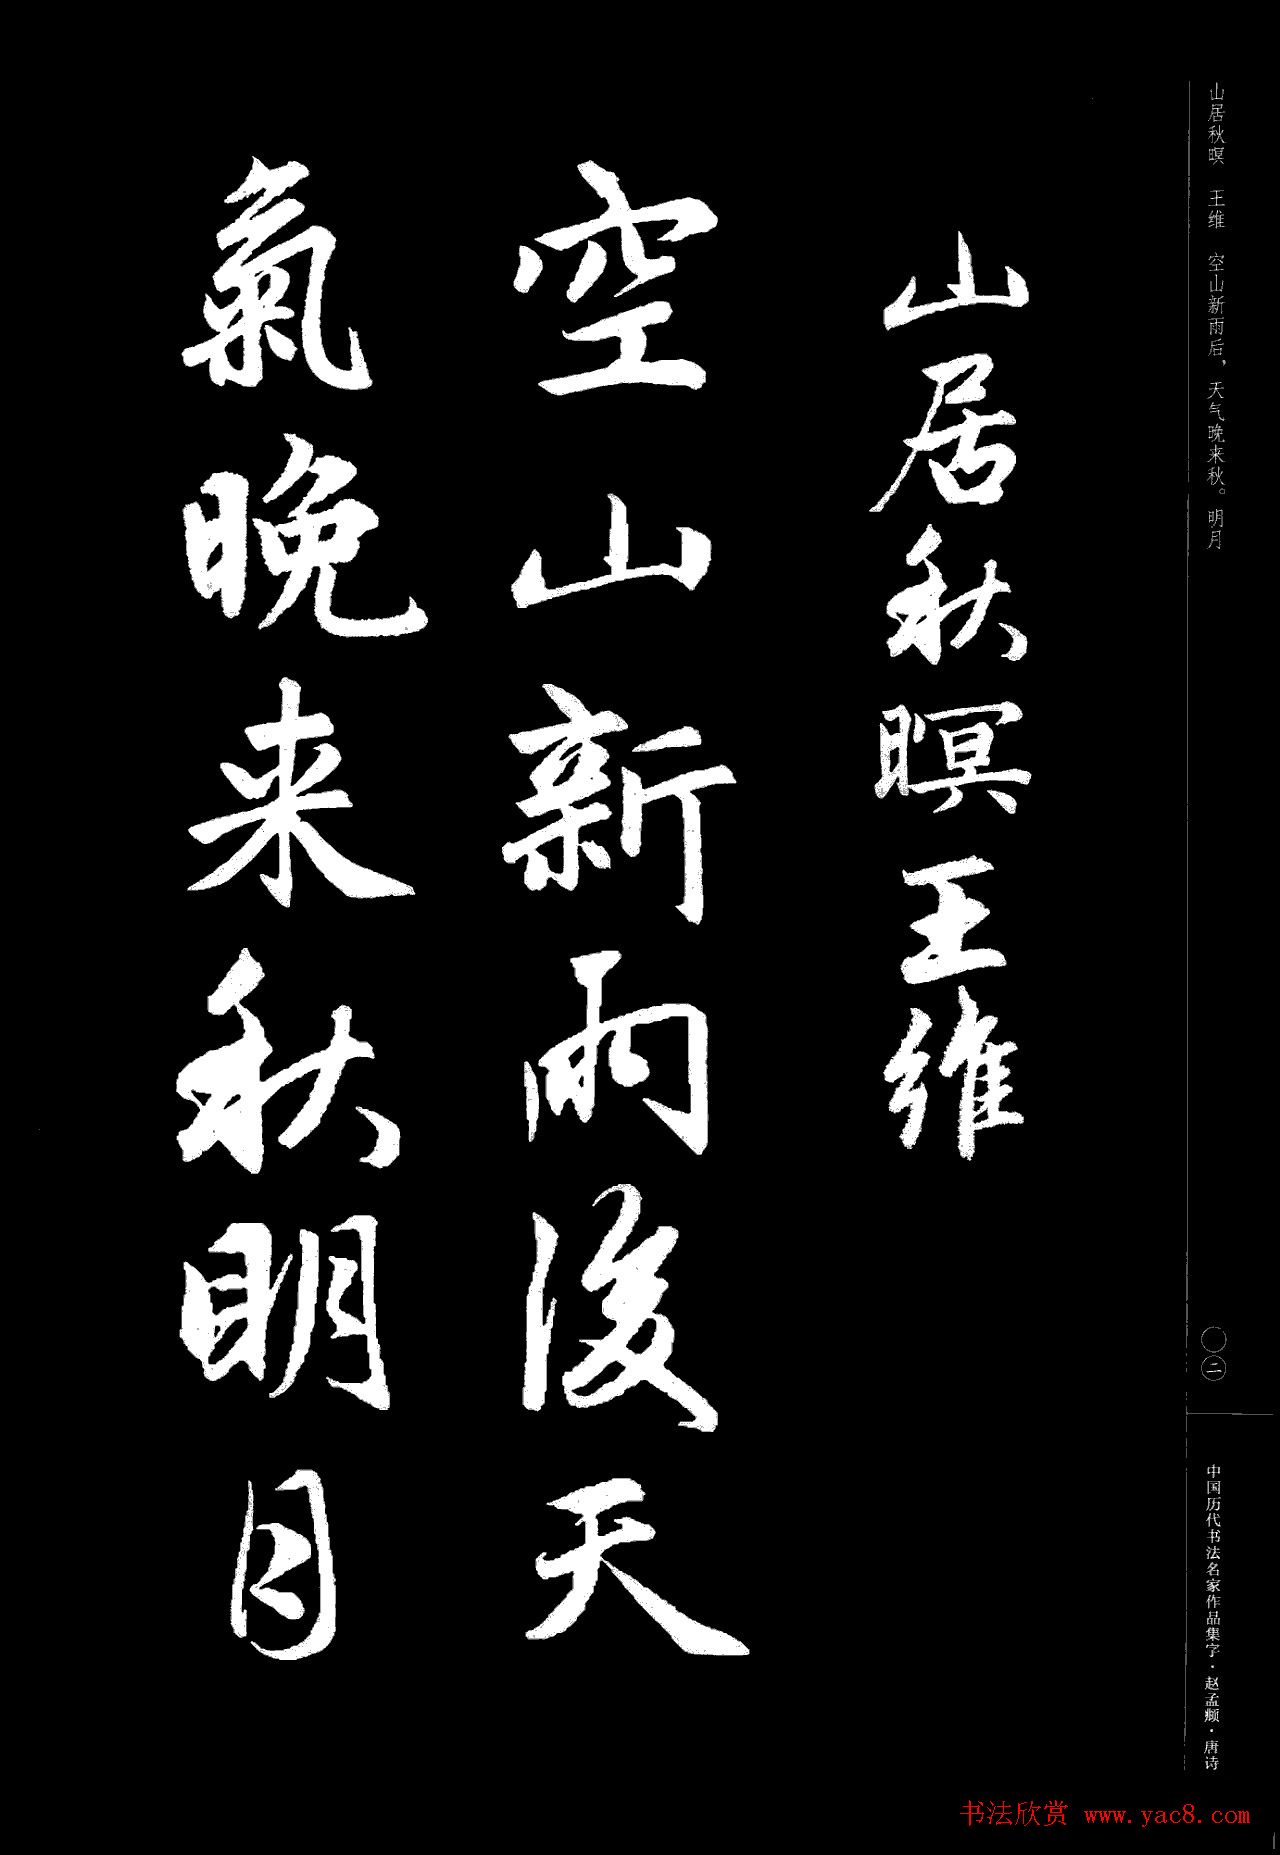 山居秋暝　王维　空山新雨后，天气晚来秋。明月
〇二
中国历代书法名家作品集字·赵孟頫·唐诗
山居秋暝王維
空山新雨後天
氣晚来秋明月
书法欣赏 www.yac8.com